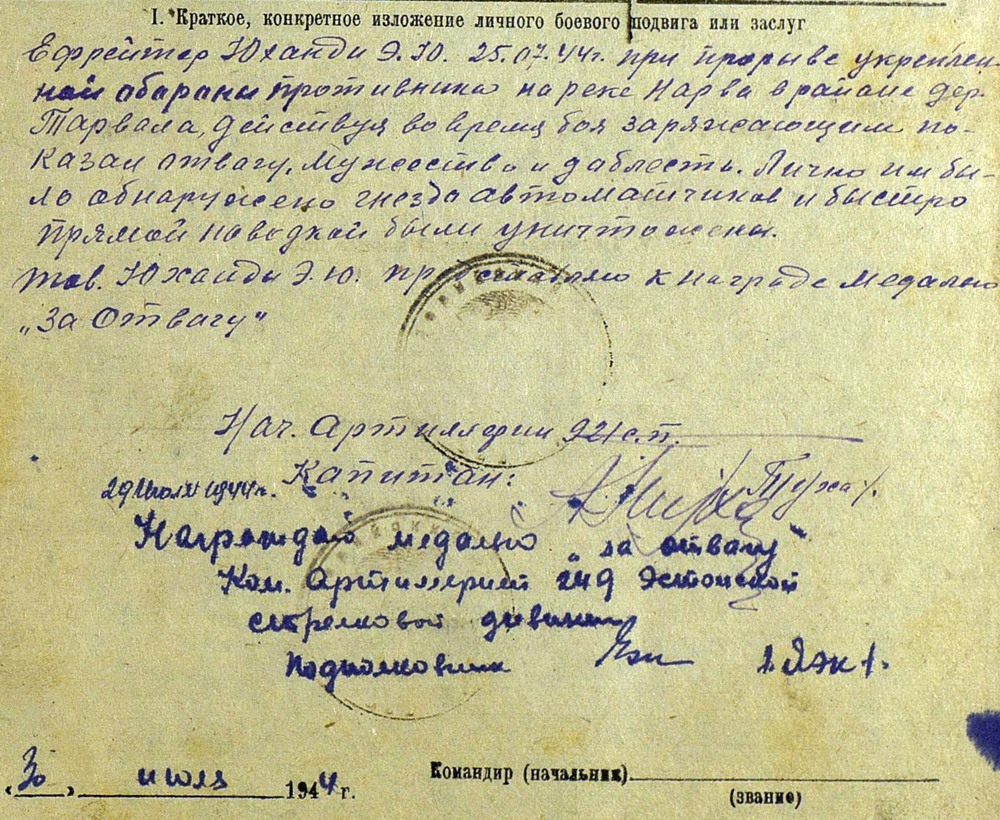 I. Краткое, конкретное изложение личного боевого подвига или заслуг
Ефрейтор Юханди Э.Ю. 25.07.44г. при прорыве укреплен-
ной обароны противника на реке Нарва в районе дер.
Тарвала, действуя во время боя заряжающим по-
казал отвагу, мужество и доблесть. Лично им бы-
ло обнаружено гнездо автоматчиков и быстро
прямой наводкой были уничтожены.
тов. Юханди Э.Ю. представляю к награде медалью
„За Отвагу"
Нач. Артиллерии 921 с.п.
Капитан:
29 июля 1944г.
Награждай медалью „за отвагу"
Ком. Артиллерией 249 Эстонской
стрелковой дивизии
Подполковник
"30" июля 1944 г.
Командир (начальник)
(звание)